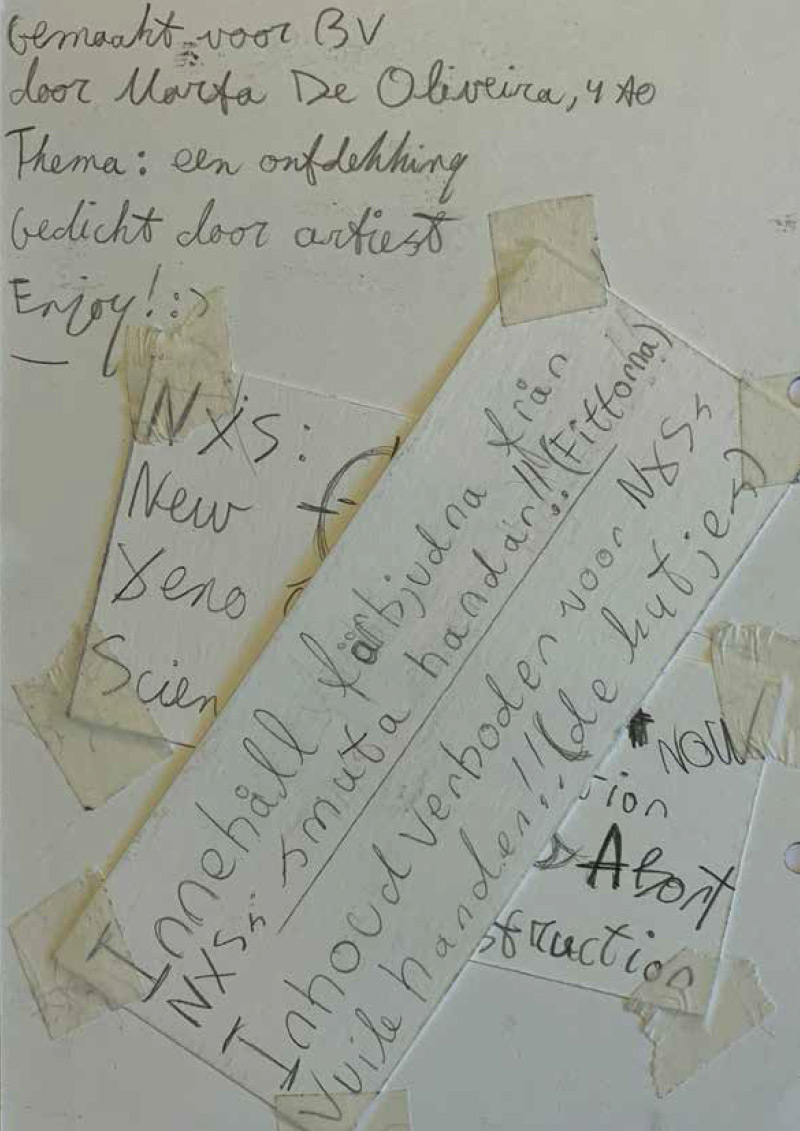 Gemaakt voor BV
door Marta De Oliveira, 4 AO
Thema: een ontdekking
Gedicht door artiest
Enjoy! :)
NXS:
New
Xeno
Scien
Innehåll förbjudna från
NXS's smuta handar!!! (Fittorna)
Inhoud verboden voor NXS's
vuile handen!!! (de kutjes)
NOW
tion
Abort
struction